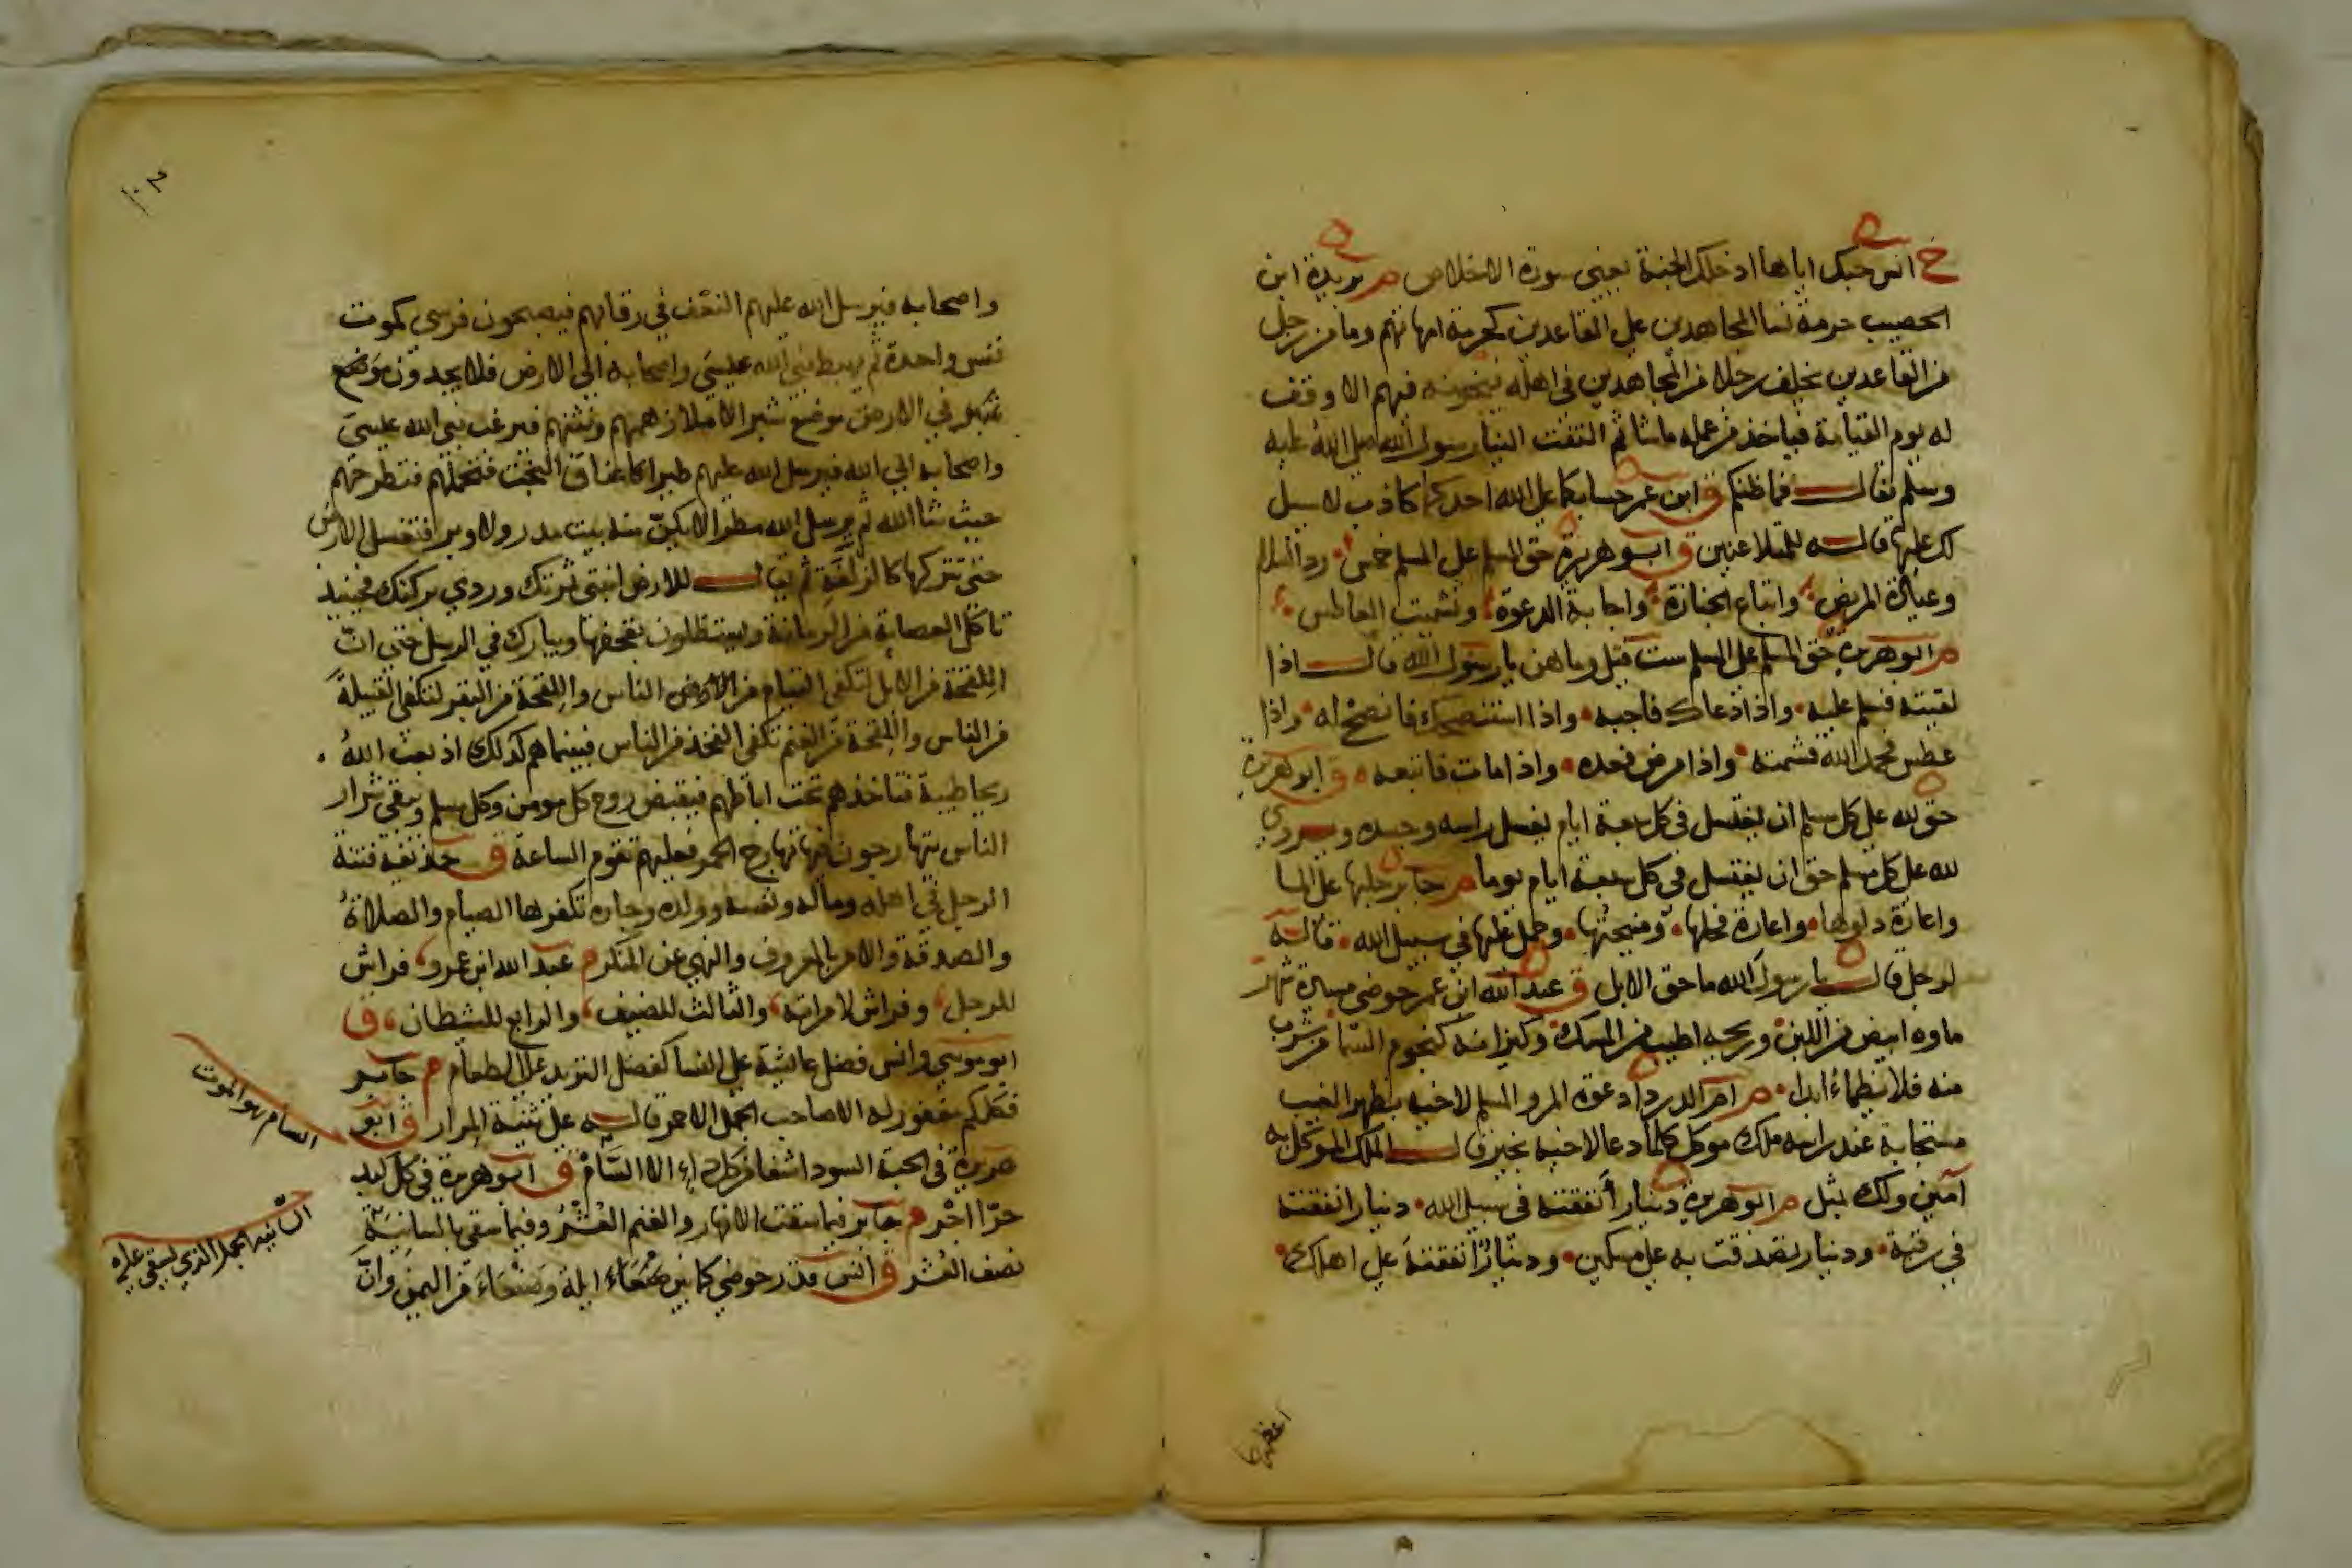 خ انس حبك اياها ادخلك الجنة يعني سورة الاخلاص م بريدة ابن
الحصيب حرمة نسا المجاهدين على القاعدين كحرمة امهاتهم وما من رجل
من القاعدين يخلف رجلا من المجاهدين في اهله فيخونه فيهم الا وقف
له يوم القيامة فياخذ من عمله ما شا ثم التفت الينا رسول الله صلى الله عليه
وسلم فقال فما ظنكم ق ابن عمر حسابكما على الله احدكما كاذب لا سبيل
لك عليها قاله للمتلاعنين ق ابو هريرة حق المسلم على المسلم خمس رد السلام
وعيادة المريض واتباع الجنازة واجابة الدعوة وتشميت العاطس
م ابو هريرة حق المسلم على المسلم ست قيل وما هن يا رسول الله قال اذا
لقيته فسلم عليه واذا دعاك فاجبه واذا استنصحك فانصح له واذا
عطس فحمد الله فشمته واذا مرض فعده واذا مات فاتبعه ق ابو هريرة
حق لله على كل مسلم ان يغتسل في كل سبعة ايام يغسل راسه وجسده ويروى
لله على كل مسلم حق ان يغتسل في كل سبعة ايام يوما م جابر حلبها على الما
واعارة دلوها واعارة فحلها ومنيحتها وحمل عليها في سبيل الله قاله
لرجل قال يا رسول الله ما حق الابل ق عبد الله ابن عمر حوضي مسيرة شهر
ماوه ابيض من اللبن وريحه اطيب من المسك وكيزانه كنجوم السما من شرب
منه فلا يظماء ابدا م ام الدردا دعوة المرو المسلم لاخيه بظهر الغيب
مستجابة عند راسه ملك موكل كلما دعا لاخيه بخير قال الملك الموكل به
آمين ولك بمثل م ابو هريرة دينار أنفقته في سبيل الله دينار انفقته
في رقبة ودينار تصدقت به على مسكين ودينار انفقته على اهلك
اعظمها
١٠٢
واصحابه فيرسل الله عليهم النغف في رقابهم فيصبحون فرسى كموت
نفس واحدة ثم يهبط نبي الله عيسى واصحابه الى الارض فلا يجدون موضع
شبر في الارض موضع شبر الا ملاء زهمهم ونتنهم فيرغب نبي الله عيسى
واصحابه الى الله فيرسل الله عليهم طيرا كاعناق البخت فتحملهم فتطرحهم
حيث شا الله ثم يرسل الله مطرا لا يكن منه بيت مدر ولا وبر فتغسل الارض
حتى تتركها كالزلفة ثم يقال للارض انبتي ثمرتك وردي بركتك فحينئذ
تاكل العصابة من الرمانة ويستظلون بقحفها ويبارك في الرسل حتى انّ
اللقحة من الابل لتكفي الفيام من الناس واللقحة من البقر لتكفي القبيلة
من الناس واللقحة من الغنم تكفي الفخذ من الناس فبينما هم كذلك اذ بعث الله
ريحا طيبة فتاخذهم تحت اباطهم فيقبض روح كل مومن وكل مسلم ويبقى شرار
الناس يتهارجون فيها تهارج الحمر فعليهم تقوم الساعة ق حذيفة فتنة
الرجل في اهله وماله ونفسه وولده وجاره تكفرها الصيام والصلاة
والصدقة والامر بالمعروف والنهي عن المنكر م عبد الله ابن عمرو فراش
للرجل وفراش لامراته والثالث للضيف والرابع للشيطان ق
ابو موسى وانس فضل عائشة على النسا كفضل الثريد على الطعام م جابر
فكلكم مغفور له الا صاحب الجمل الاحمر قاله على ثنية المرار ق ابو
هريرة في الحبة السودا شفا من كل داء الا السام ق ابو هريرة في كل كبد
حرّا اجر م جابر فيما سقت الانهار والغيم العشر وفيما سقي بالسانية
نصف العشر ق انس قدر حوضي كما بين صنعاء ايلة وصنعاء من اليمن وانّ
السام هو الموت
السانية الجمل الذي يسقى عليه